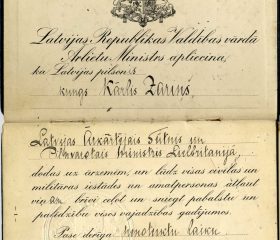 Latvijas Republikas Valdības vārdā
Ārlietu Ministrs apliecina,
ka Latvijas pilsonis
kungs Kārlis Zariņš
Latvijas Ārkārtējais Sūtnis un
Pilnvarotais Ministrs Lielbritanijā,
dodas uz ārzemēm, un lūdz visas civilas un
militaras iestādes un amatpersonas atļaut
viņam brīvi ceļot un sniegt pabalstu un
palīdzību visos vajadzības gadījumos.
Pase derīga
laiku